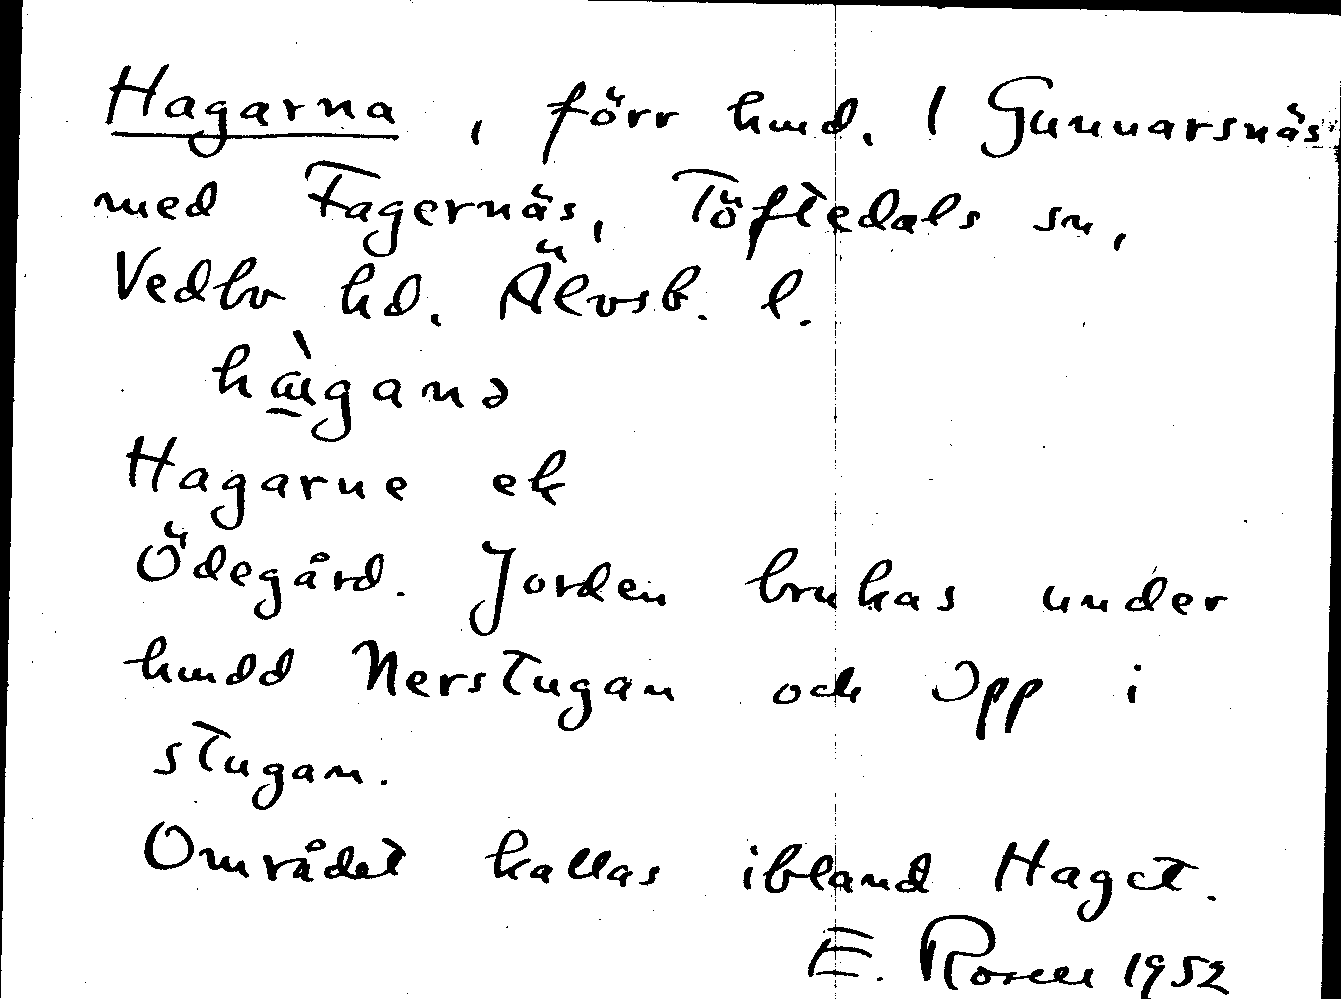 Hagarna, förr hmd. / Gunnarsnäs
med Fagernäs, Töftedals sn,
Vedbo hd. Älvsb. l.
hàganə
Hagarne ek
Ödegård. Jorden brukas under
hmdd Nerstugan och Opp i
stugan.
Området kallas ibland Haget.
E. Rosell 1952